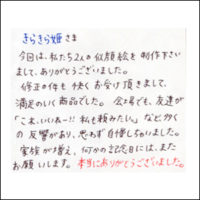 きらきら姫さま
今回は、私たち2人の似顔絵を制作下さい
まして、ありがとうございました。
修正の件も快くお受け頂きまして、
満足のいく商品でした。会場でも、友達が
「これ、いいねー!!私も頼みたい。」など多く
の反響があり、思わず自慢しちゃいました。
家族が増え、何かの記念日には、また
お願いします。本当にありがとうございました。